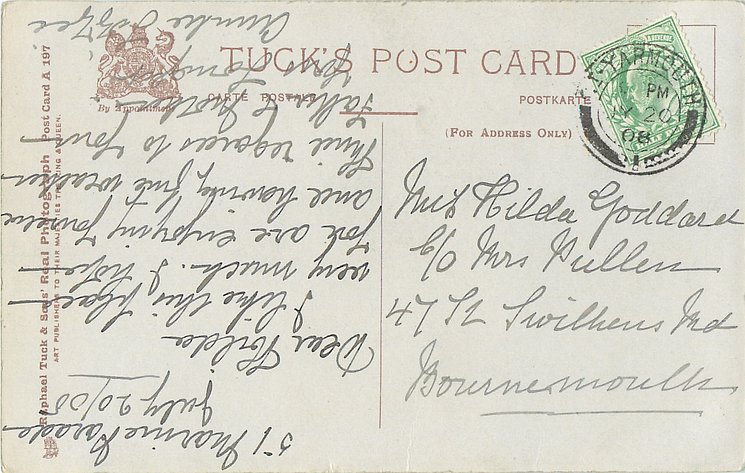 TUCK'S POST CARD
CARTE POSTALE
POSTKARTE
By Appointment
(FOR ADDRESS ONLY)
YARMOUTH
PM
20
08
Raphael Tuck & Sons' Real Photograph Post Card A 197
ART PUBLISHERS TO THEIR MAJESTIES THE KING & QUEEN.
Miss Hilda Goddard
c/o Mrs Pullen
47 St Swithens Rd
Bournemouth
51 Marine Parade
July 20/08
Dear Hilda
I like this place
very much. I hope
you are enjoying yourself
and having fine weather
Kind regards to your